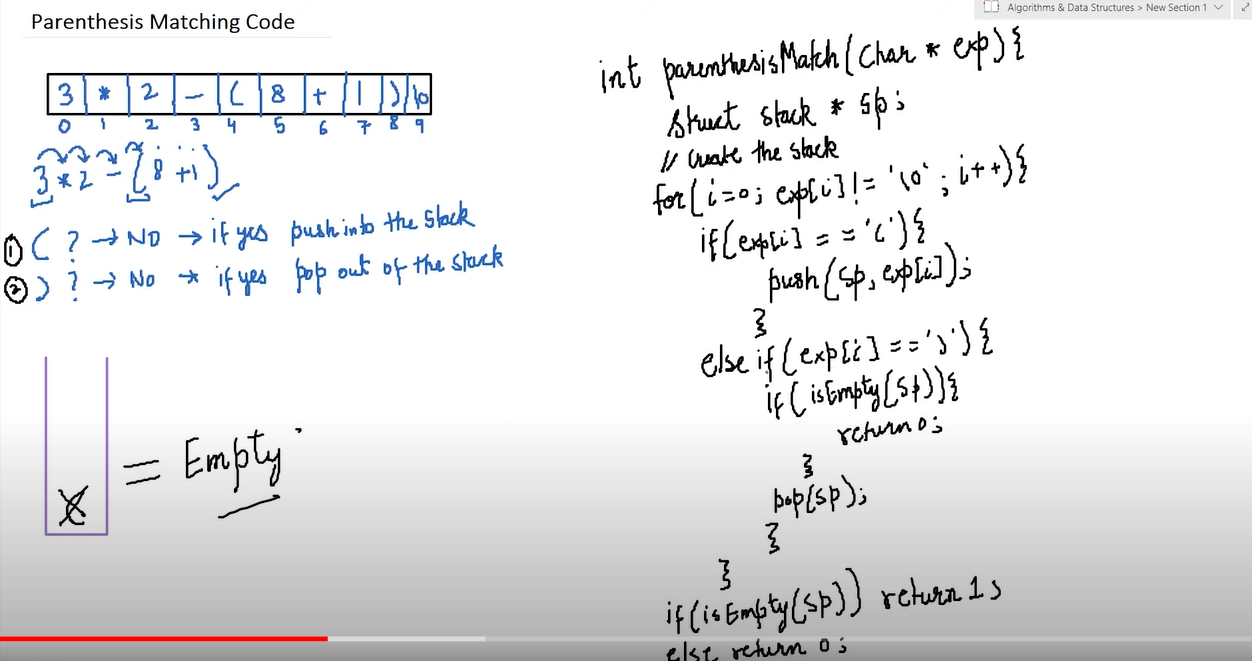 Algorithms & Data Structures > New Section 1
Parenthesis Matching Code
3 * 2 - ( 8 + 1 ) \0
0 1 2 3 4 5 6 7 8 9
3 * 2 - ( 8 + 1 )
① ( ? → NO → if yes push into the stack
② ) ? → No → if yes pop out of the stack
= Empty
int parenthesisMatch(char * exp){
struct stack * sp;
// create the stack
for(i=0; exp[i]!= '\0'; i++){
if(exp[i] == '('){
push(sp, exp[i]);
}
else if(exp[i] == ')'){
if(isEmpty(sp)){
return 0;
}
pop(sp);
}
}
if(isEmpty(sp)) return 1;
else return 0;